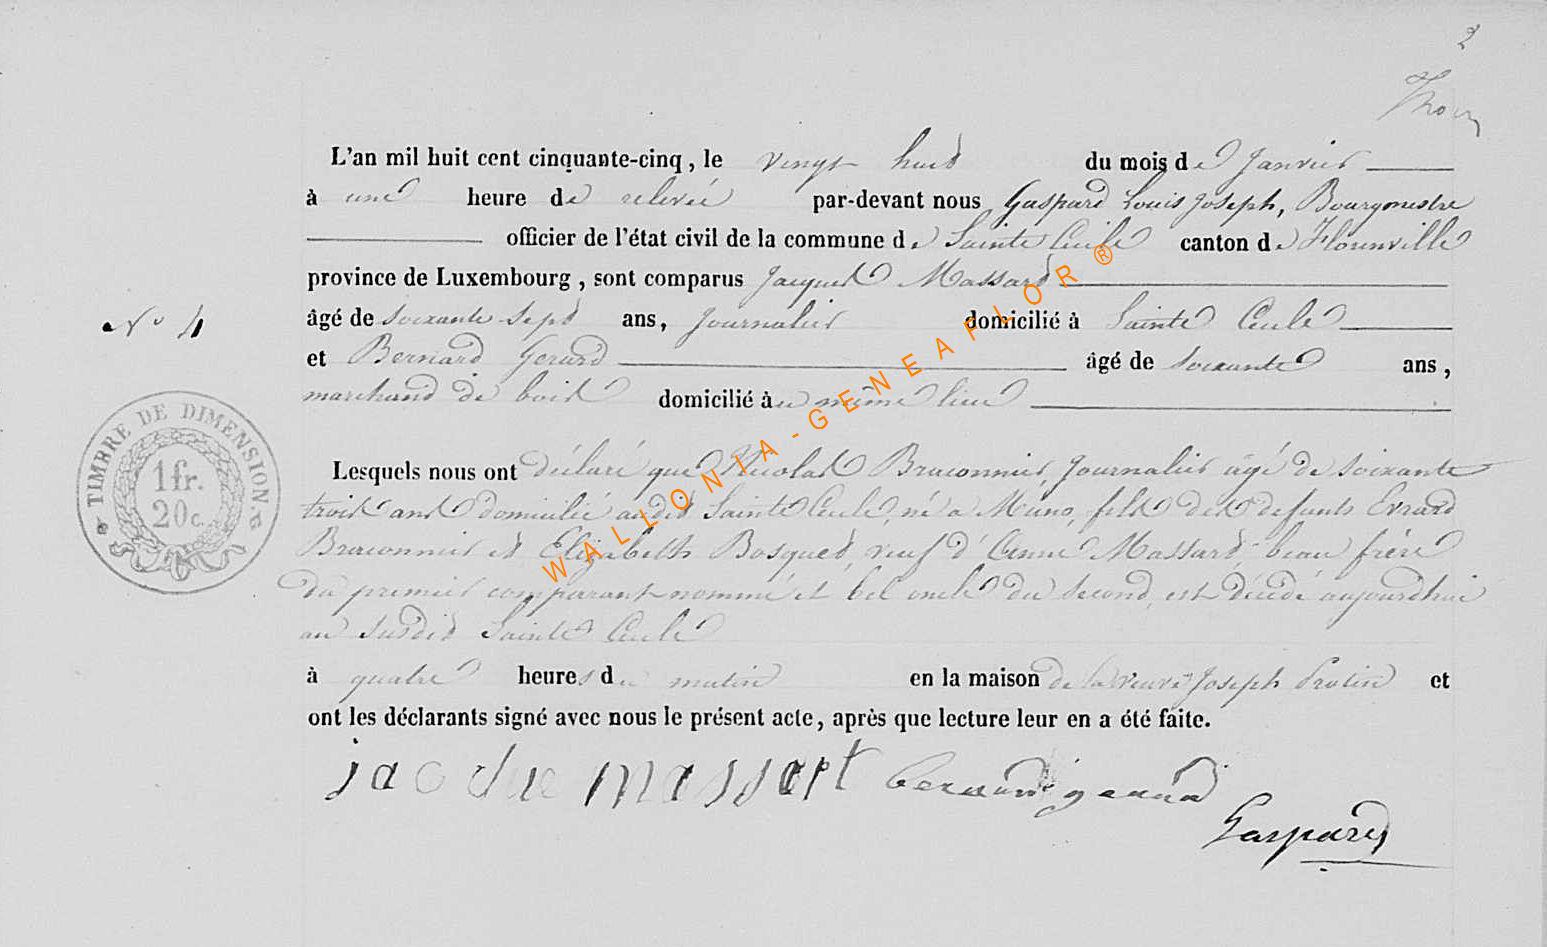 2
L'an mil huit cent cinquante-cinq, le vingt huit du mois de Janvier
à une heure de relevée par-devant nous Gaspard Louis Joseph, Bourgmestre
officier de l'état civil de la commune de Sainte Cecile canton de Florenville
province de Luxembourg, sont comparus Jacques Massard
N° 4
âgé de soixante sept ans, Journalier domicilié à Sainte Cecile
et Bernard Gerard âgé de soixante ans,
marchand de bois domicilié au même lieu
TIMBRE DE DIMENSION.
1 fr.
20 c.
Lesquels nous ont déclaré que Nicolas Braconnier, Journalier âgé de soixante
trois ans domicilié audit Sainte Cecile, né a Muno, fils des defunts Evrard
Braconnier et Elizabeth Bosquet, veuf d'Anne Massard beau frère
du premier comparant nommé et bel oncle du second, est décédé aujourdhui
au susdit Sainte Cecile
à quatre heures du matin en la maison de la veuve Joseph Protin et
ont les déclarants signé avec nous le présent acte, après que lecture leur en a été faite.
jacque massart bernard gerard
Gaspard
WALLONIA-GENEAFLOR ®